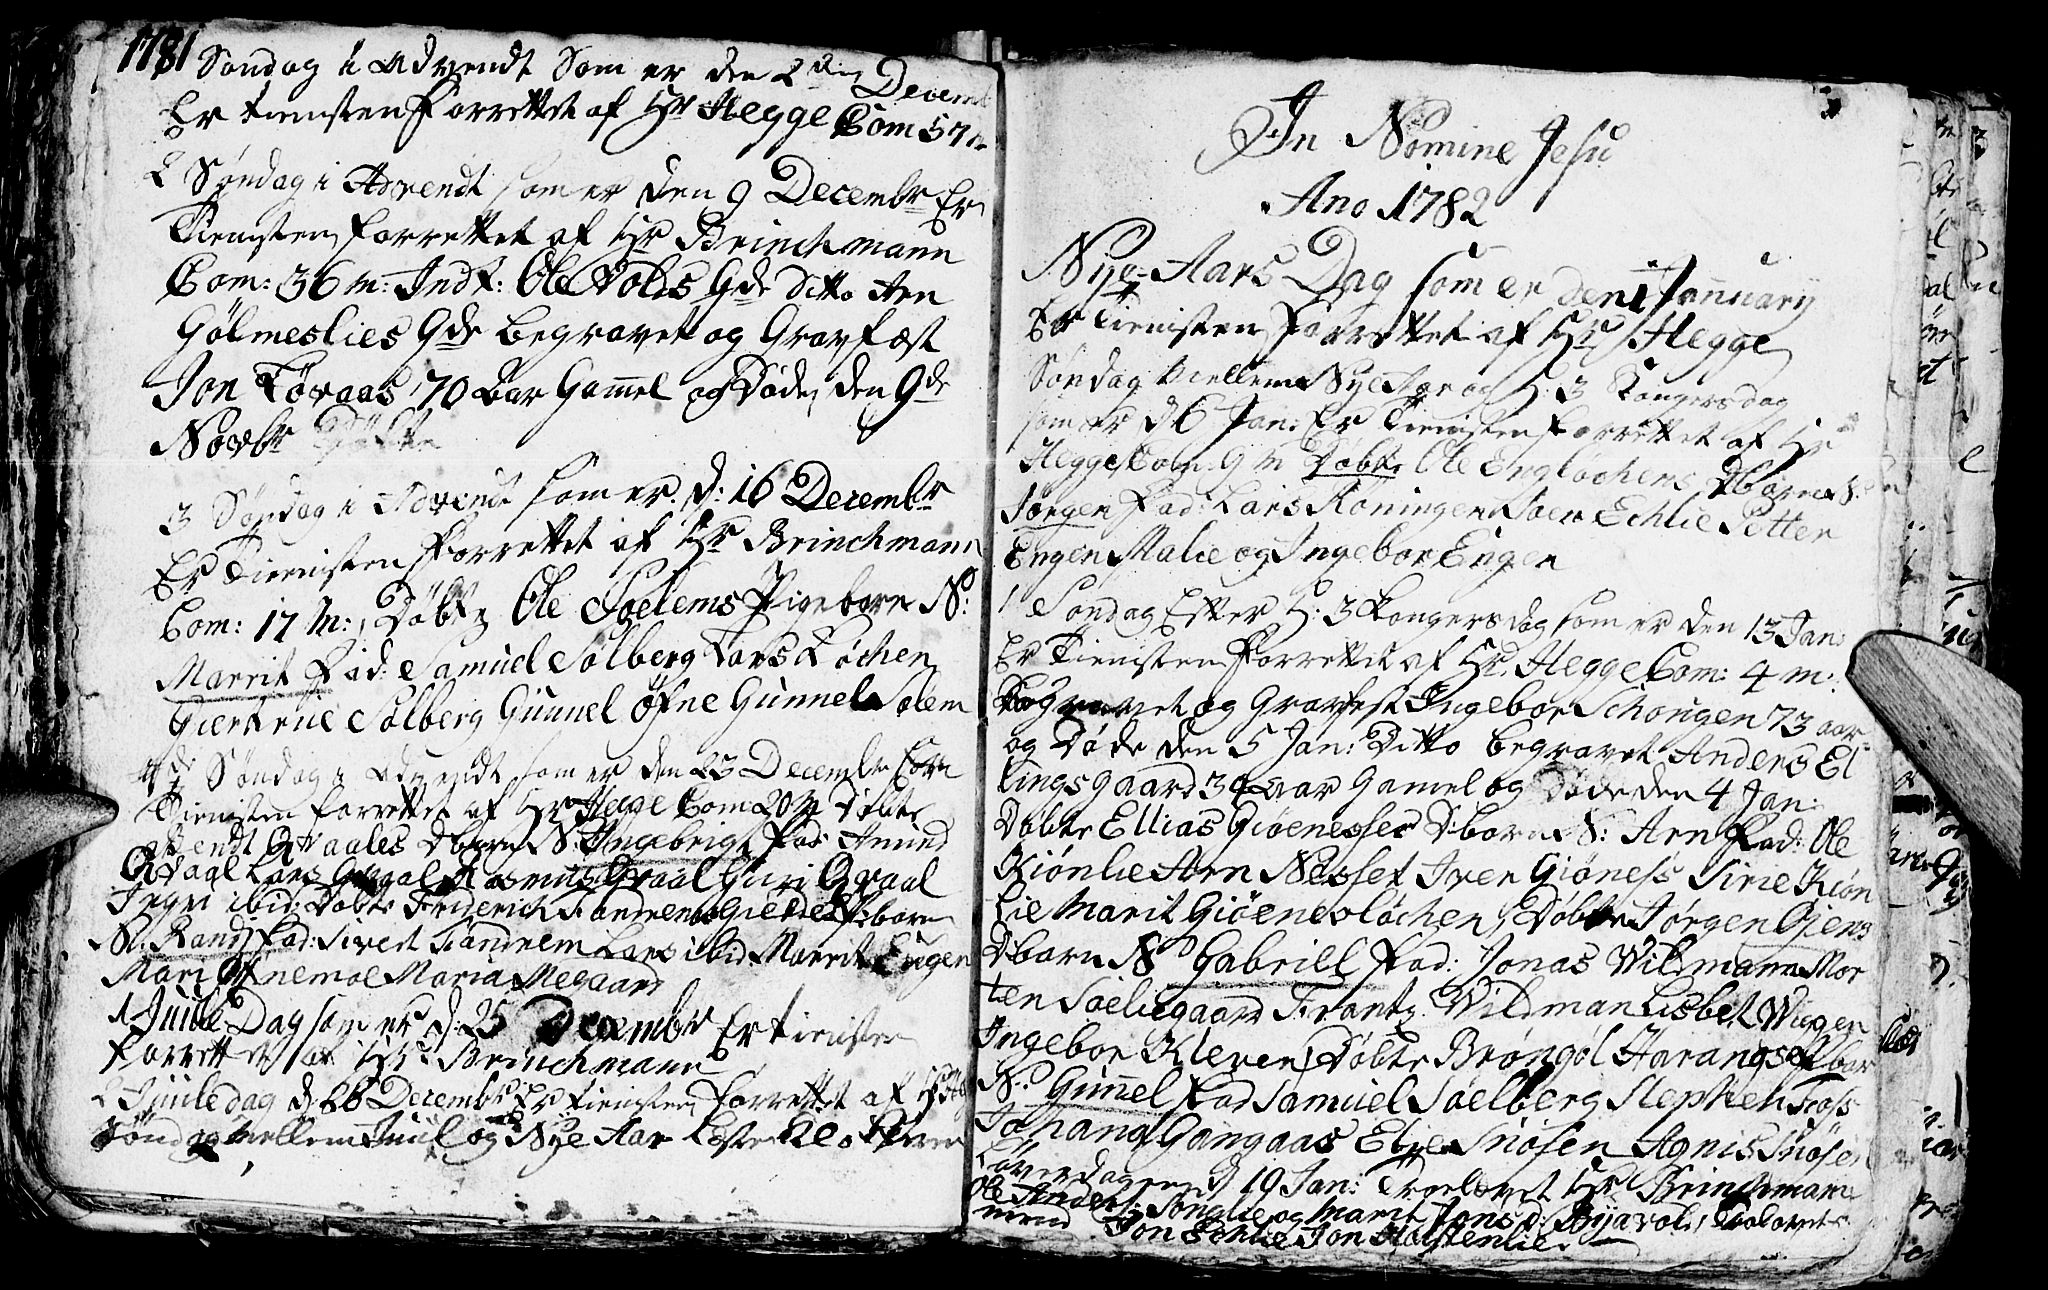 1781
Søndag i Advendt Som er den 2den Decemb
Er tienisten Forrettet af Hr Hegge Com 57 m
2 Søndag i Advendt som er den 9 Decembr Er
Tienisten forrettet af Hr Brinchmann
Com: 36 m: Indf: Ole Volds Qde Ditto Arn
Gølmeslies Qde Begravet og Gravfæst
Jon Løvaas 70 Aar Gamel og Døde den 9de
Novbr
3 Søndag i Advendt som er d: 16 Decembr
Er Tienisten Forrettet af Hr Brinchmann
Com: 17 m: Døbte Ole Soelems Pigebarn N:
Marrit Fad: Samuel Sølberg Lars Løchen
Giertrue Sølberg Gunnel Øfne Gunnel Solem
4de Søndag i Advendt som er den 23 Decembr
Tienisten forrettet af Hr Hegge Com 20 m Døbte
Qvaales Dbarn N. Ingebrigt Fad: Amund
Qvaal Lars Qvaal Rasmus Qvaal Guri Qvaal
Ingri ibid: Døbte Friderich Tandrems Pbarn
N. Randi Fad: Sivert Tandrem Lars ibid. Marrit Engen
Mari Øfnemoe Maria Megaard
1 Juule Dag som er d. 25 Decembr Er tienisten
Forrettet af Hr Brinchmann
2 Juule dag d. 26 Decembr Er tienisten forrettet af Hr
Søndag mellem Juul og Nye Aar
In Nomine Jesu
Ano 1782
Nye Aars Dag som er den 1 January
Er Tienisten Forrettet af Hr Hegge
Søndag Mellem Nye Aar og H: 3 Kongers dag
som er d 6 Jan: Er Tienisten forrettet af Hr
Hegge Com: 9 m Døbte Ole Engløchens Dbarn N:
Jørgen Fad: Lars Koningen Joen Echlie Petter
Engen Malie og Ingebor Engen
1 Søndag Efter H: 3 Kongers dag som er den 13 Jan:
Er Tienisten Forrettet af Hr. Hegge Com: 4 m:
Begravet og Gravfest Ingebor Schougen 73 aar
og Døde den 5 Jan: Ditto begravet Anders El
lingsgaard 34 aar Gamel og Døde den 4 Jan:
Døbte Ellias Giøenesses Dbarn N: Arn Fad: Ole
Kiønlie Arn Nesset Iver Giøness Sirie Kiøn
lie Marit Giøenesløchen, Døbte Jørgen Giens
Dbarn N Gabriell Fad: Jonas Wildmann Mor
ten Soeliegaard Frantz Wildman Lisbet Wiigen
Ingebor Kleven, Døbte Brøngøl Harangs Pbar
N: Gunnel Fad Samuel Soelberg Stephen Foss
Johana Gangaas Elie Snøsen Agnis Snøsen
Løverdagen d 19 Jan: Troelovet Hr Brinchmann
Ole Anders: Songlie og Marit Jons d: Byavold, Cavlovets
mend Jon Echlie Jon Holstenlie